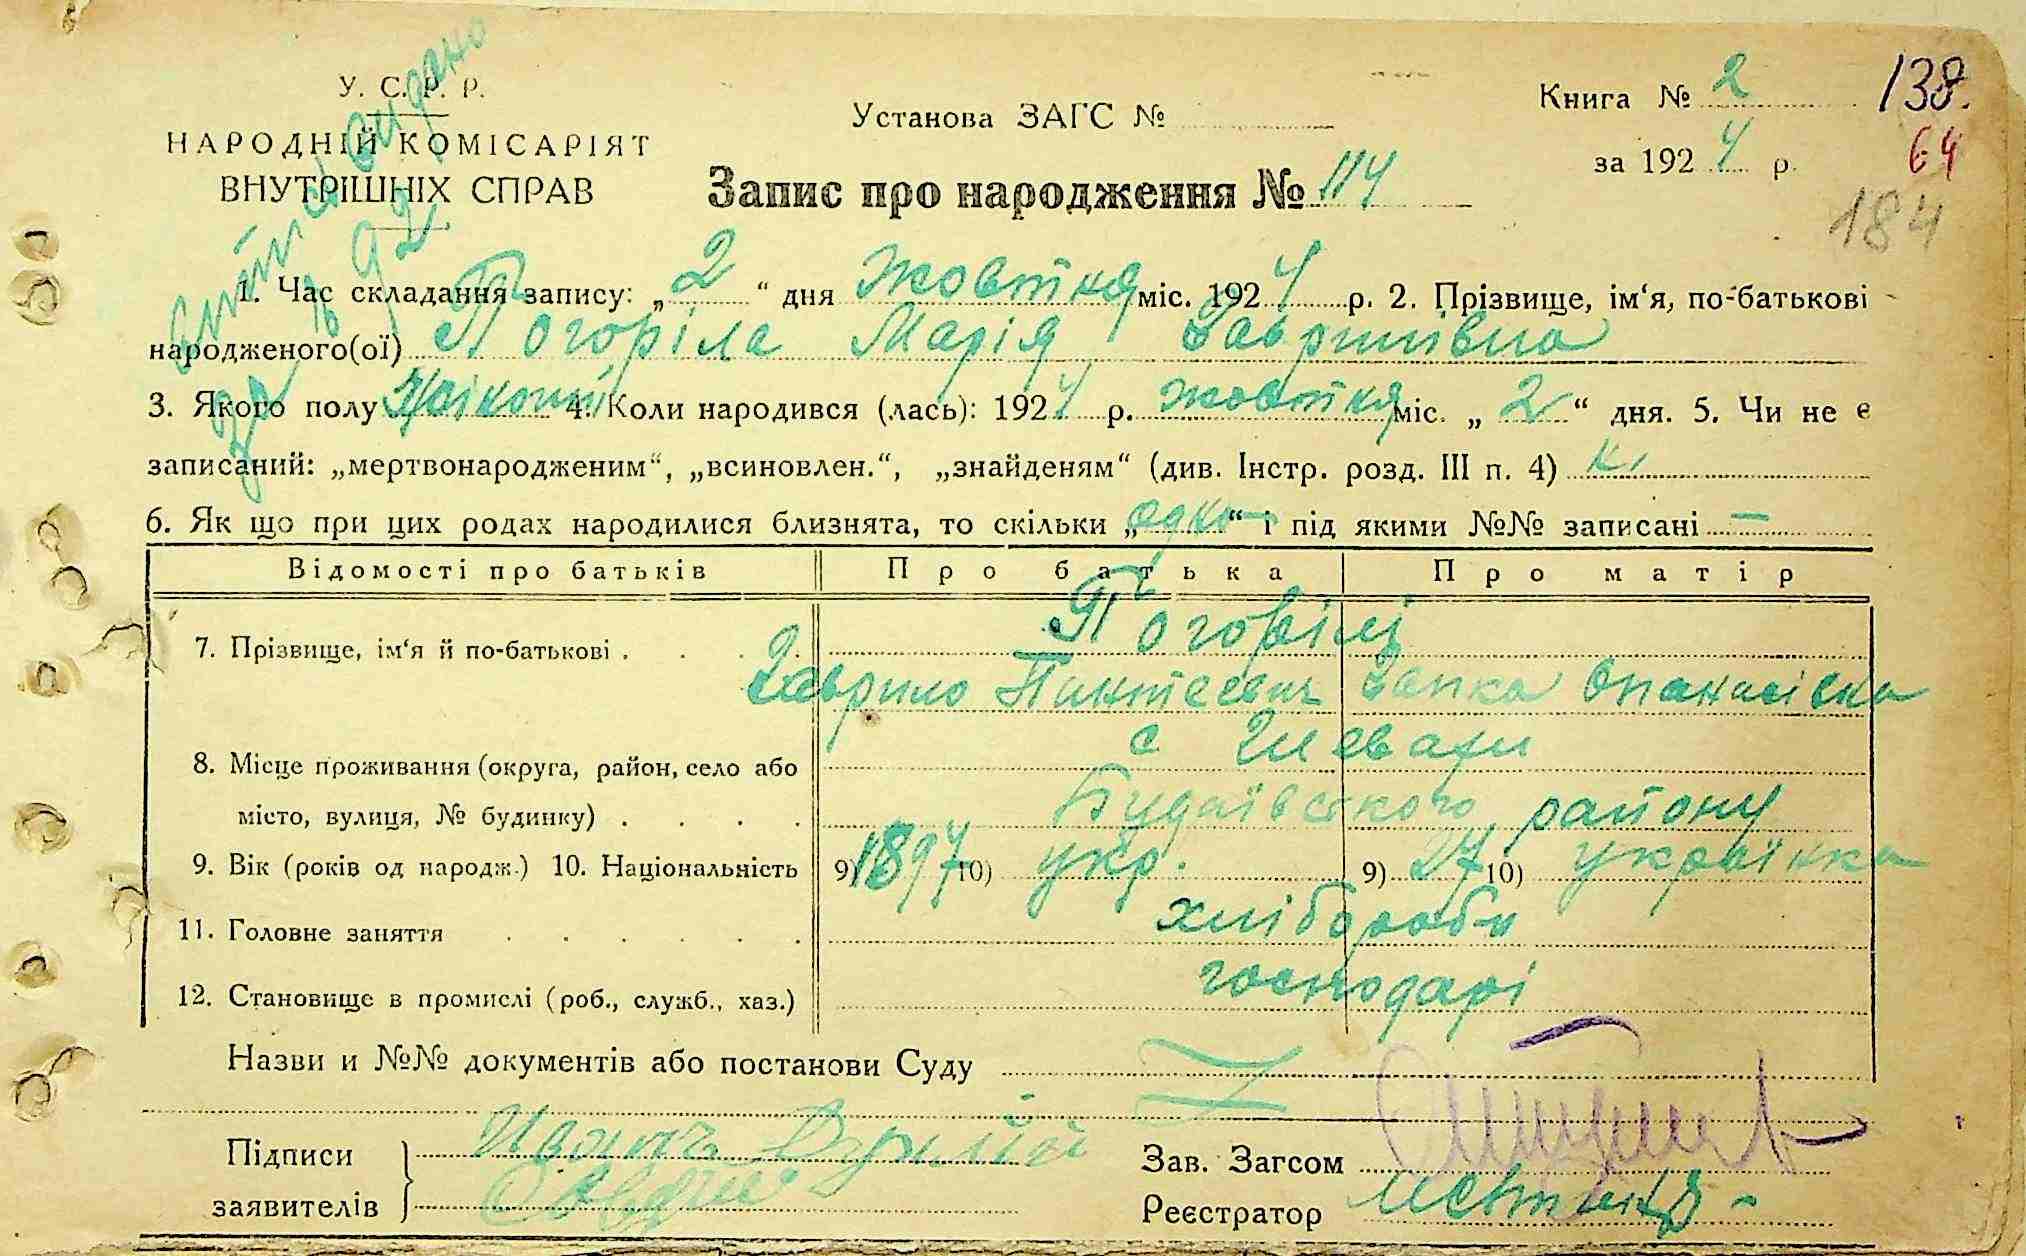 У. С. Р. Р.
НАРОДНІЙ КОМІСАРІЯТ
ВНУТРІШНІХ СПРАВ
Установа ЗАГС №
Книга № 2
138.
за 1924 р.
64
Запис про народження № 114
184
1. Час складання запису: „2“ дня жовтня міс. 1924 р. 2. Прізвище, ім‘я, по-батькові
народженого(ої) Погоріла Марія Гаврилівна
3. Якого полу жіночий 4. Коли народився (лась): 1924 р. жовтня міс. „2“ дня. 5. Чи не є
записаний: „мертвонародженим“, „всиновлен.“, „знайденям“ (див. Інстр. розд. III п. 4) н.
6. Як що при цих родах народилися близнята, то скільки „одно“ і під якими №№ записані —
Відомості про батьків Про батька Про матір
7. Прізвище, ім‘я й по-батькові . . . . Погорілі
Гаврило Пантеевич Ганка Опанасівна
8. Місце проживання (округа, район, село або с Глеваха
місто, вулиця, № будинку) . . . . Будаївського району
9. Вік (років од народж.) 10. Національність 9) 1897 10) укр. 9) 27 10) українка
11. Головне заняття . . . . . . хлібороби
12. Становище в промислі (роб., служб., хаз.) господарі
Назви и №№ документів або постанови Суду
Підписи
заявителів
Зав. Загсом
Реєстратор